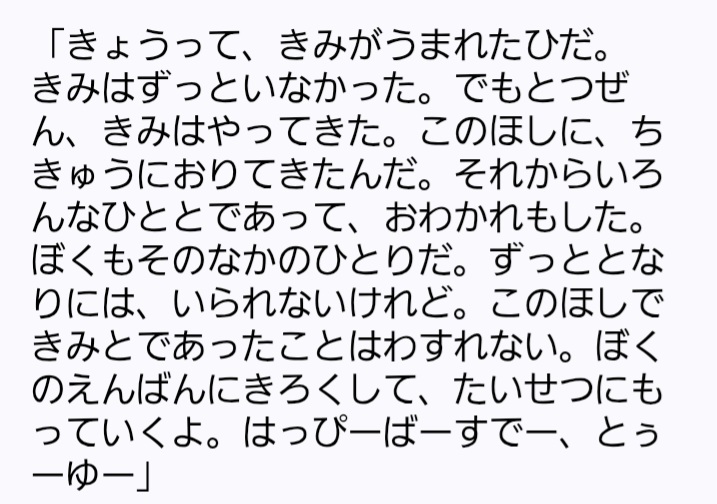 「きょうって、きみがうまれたひだ。
きみはずっといなかった。でもとつぜ
ん、きみはやってきた。このほしに、ち
きゅうにおりてきたんだ。それからいろ
んなひととであって、おわかれもした。
ぼくもそのなかのひとりだ。ずっととな
りには、いられないけれど。このほしで
きみとであったことはわすれない。ぼく
のえんばんにきろくして、たいせつにも
っていくよ。はっぴーばーすでー、とぅ
ーゆー」